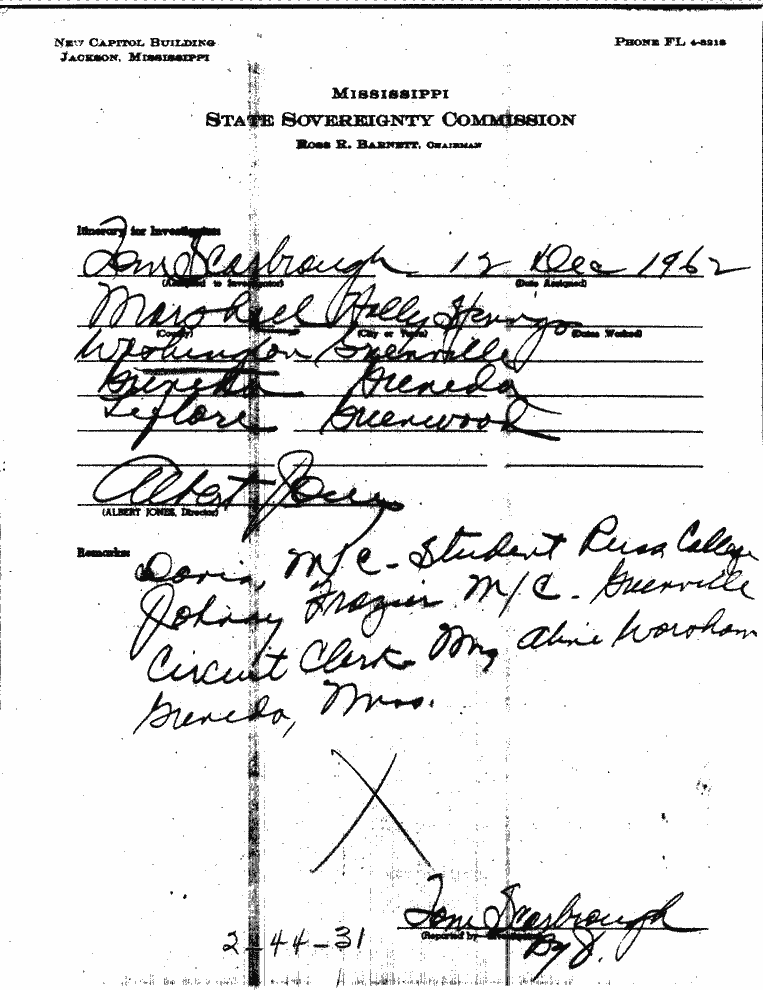 NEW CAPITOL BUILDING
JACKSON, MISSISSIPPI
PHONE FL 4-3218
MISSISSIPPI
STATE SOVEREIGNTY COMMISSION
ROSS R. BARNETT, CHAIRMAN
Itinerary for Investigation:
Tom Scarbrough 12 Dec 1962
(Assigned to Investigator) (Date Assigned)
Marshall Holly Springs
(County) (City or Town) (Dates Worked)
Washington Greenville
Greneda Greneda
Leflore Greenwood
Albert Jones
(ALBERT JONES, Director)
Remarks:
M/C - Student Russ College
Johnny Frazier M/C - Greenville
Circuit Clerk Mrs Aline Worsham
Greneda, Miss.
X
Tom Scarbrough
(Reported by
By J.
2-44-31